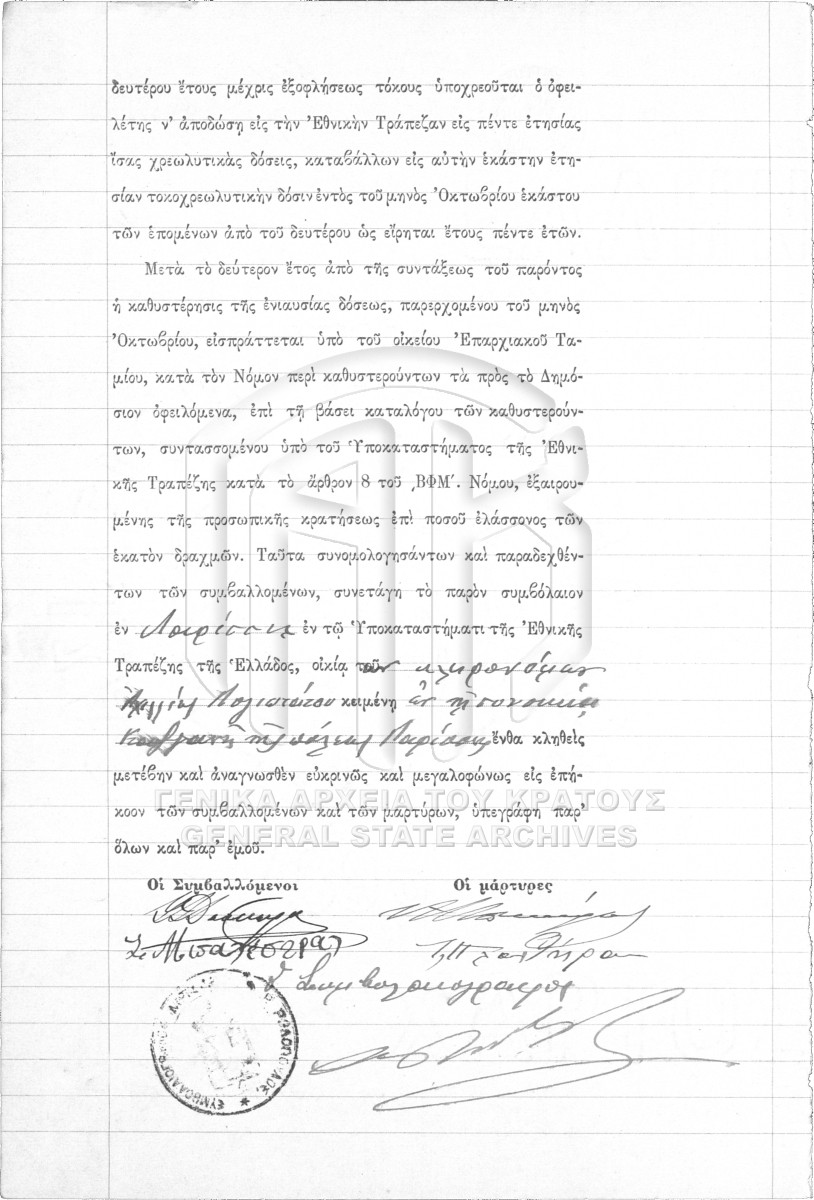 δευτέρου ἔτους μέχρις ἐξοφλήσεως τόκους ὑποχρεοῦται ὁ ὀφει-
λέτης ν' ἀποδώσῃ εἰς τὴν Ἐθνικὴν Τράπεζαν εἰς πέντε ἐτησίας
ἴσας χρεωλυτικὰς δόσεις, καταβάλλων εἰς αὐτὴν ἑκάστην ἐτη-
σίαν τοκοχρεωλυτικὴν δόσιν ἐντὸς τοῦ μηνὸς Ὀκτωβρίου ἑκάστου
τῶν ἑπομένων ἀπὸ τοῦ δευτέρου ὡς εἴρηται ἔτους πέντε ἐτῶν.
Μετὰ τὸ δεύτερον ἔτος ἀπὸ τῆς συντάξεως τοῦ παρόντος
ἡ καθυστέρησις τῆς ἐνιαυσίας δόσεως, παρερχομένου τοῦ μηνὸς
Ὀκτωβρίου, εἰσπράττεται ὑπὸ τοῦ οἰκείου Ἐπαρχιακοῦ Τα-
μίου, κατὰ τὸν Νόμον περὶ καθυστερούντων τὰ πρὸς τὸ Δημό-
σιον ὀφειλόμενα, ἐπὶ τῇ βάσει καταλόγου τῶν καθυστερούν-
των, συντασσομένου ὑπὸ τοῦ Ὑποκαταστήματος τῆς Ἐθνι-
κῆς Τραπέζης κατὰ τὸ ἄρθρον 8 τοῦ ͵ΒΦΜ΄. Νόμου, ἐξαιρου-
μένης τῆς προσωπικῆς κρατήσεως ἐπὶ ποσοῦ ἐλάσσονος τῶν
ἑκατὸν δραχμῶν. Ταῦτα συνομολογησάντων καὶ παραδεχθέν-
των τῶν συμβαλλομένων, συνετάγη τὸ παρὸν συμβόλαιον
ἐν Λαρίσσῃ ἐν τῷ Ὑποκαταστήματι τῆς Ἐθνικῆς
Τραπέζης τῆς Ἑλλάδος, οἰκίᾳ τῶν κληρονόμων
Λογιωτάτου κειμένη ἐν τῇ συνοικίᾳ
τῆς πόλεως Λαρίσσης ἔνθα κληθεὶς
μετέβην καὶ ἀναγνωσθὲν εὐκρινῶς καὶ μεγαλοφώνως εἰς ἐπή-
κοον τῶν συμβαλλομένων καὶ τῶν μαρτύρων, ὑπεγράφη παρ'
ὅλων καὶ παρ' ἐμοῦ.
ΓΕΝΙΚΑ ΑΡΧΕΙΑ ΤΟΥ ΚΡΑΤΟΥΣ
GENERAL STATE ARCHIVES
Οἱ Συμβαλλόμενοι Οἱ μάρτυρες
Ὁ Συμβολαιογράφος